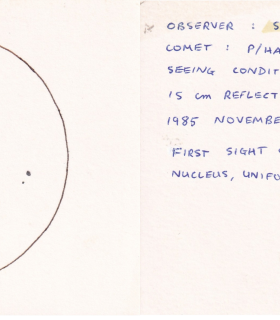 OBSERVER : S
COMET : P/HA
SEEING CONDIT
15 cm REFLECT
1985 NOVEMBE
FIRST SIGHT
NUCLEUS, UNIFO